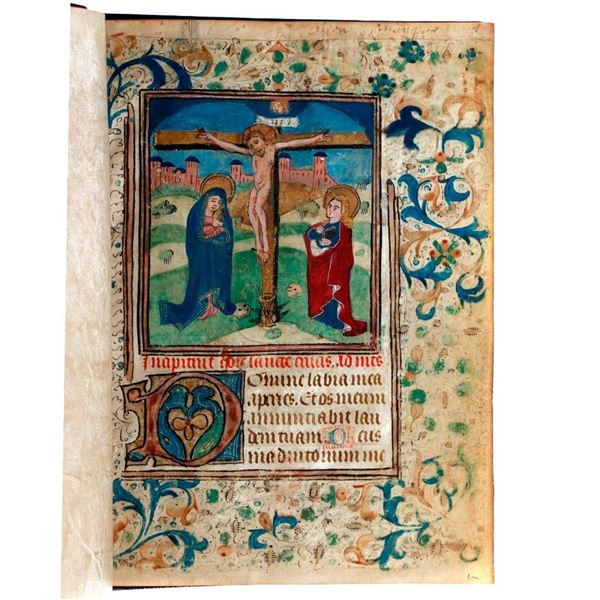 Incipiunt hore sancte crucis. Ad mts
Domine labia mea
aperies. Et os meum
annuntiabit lau
dem tuam Deus
in adiutorium me